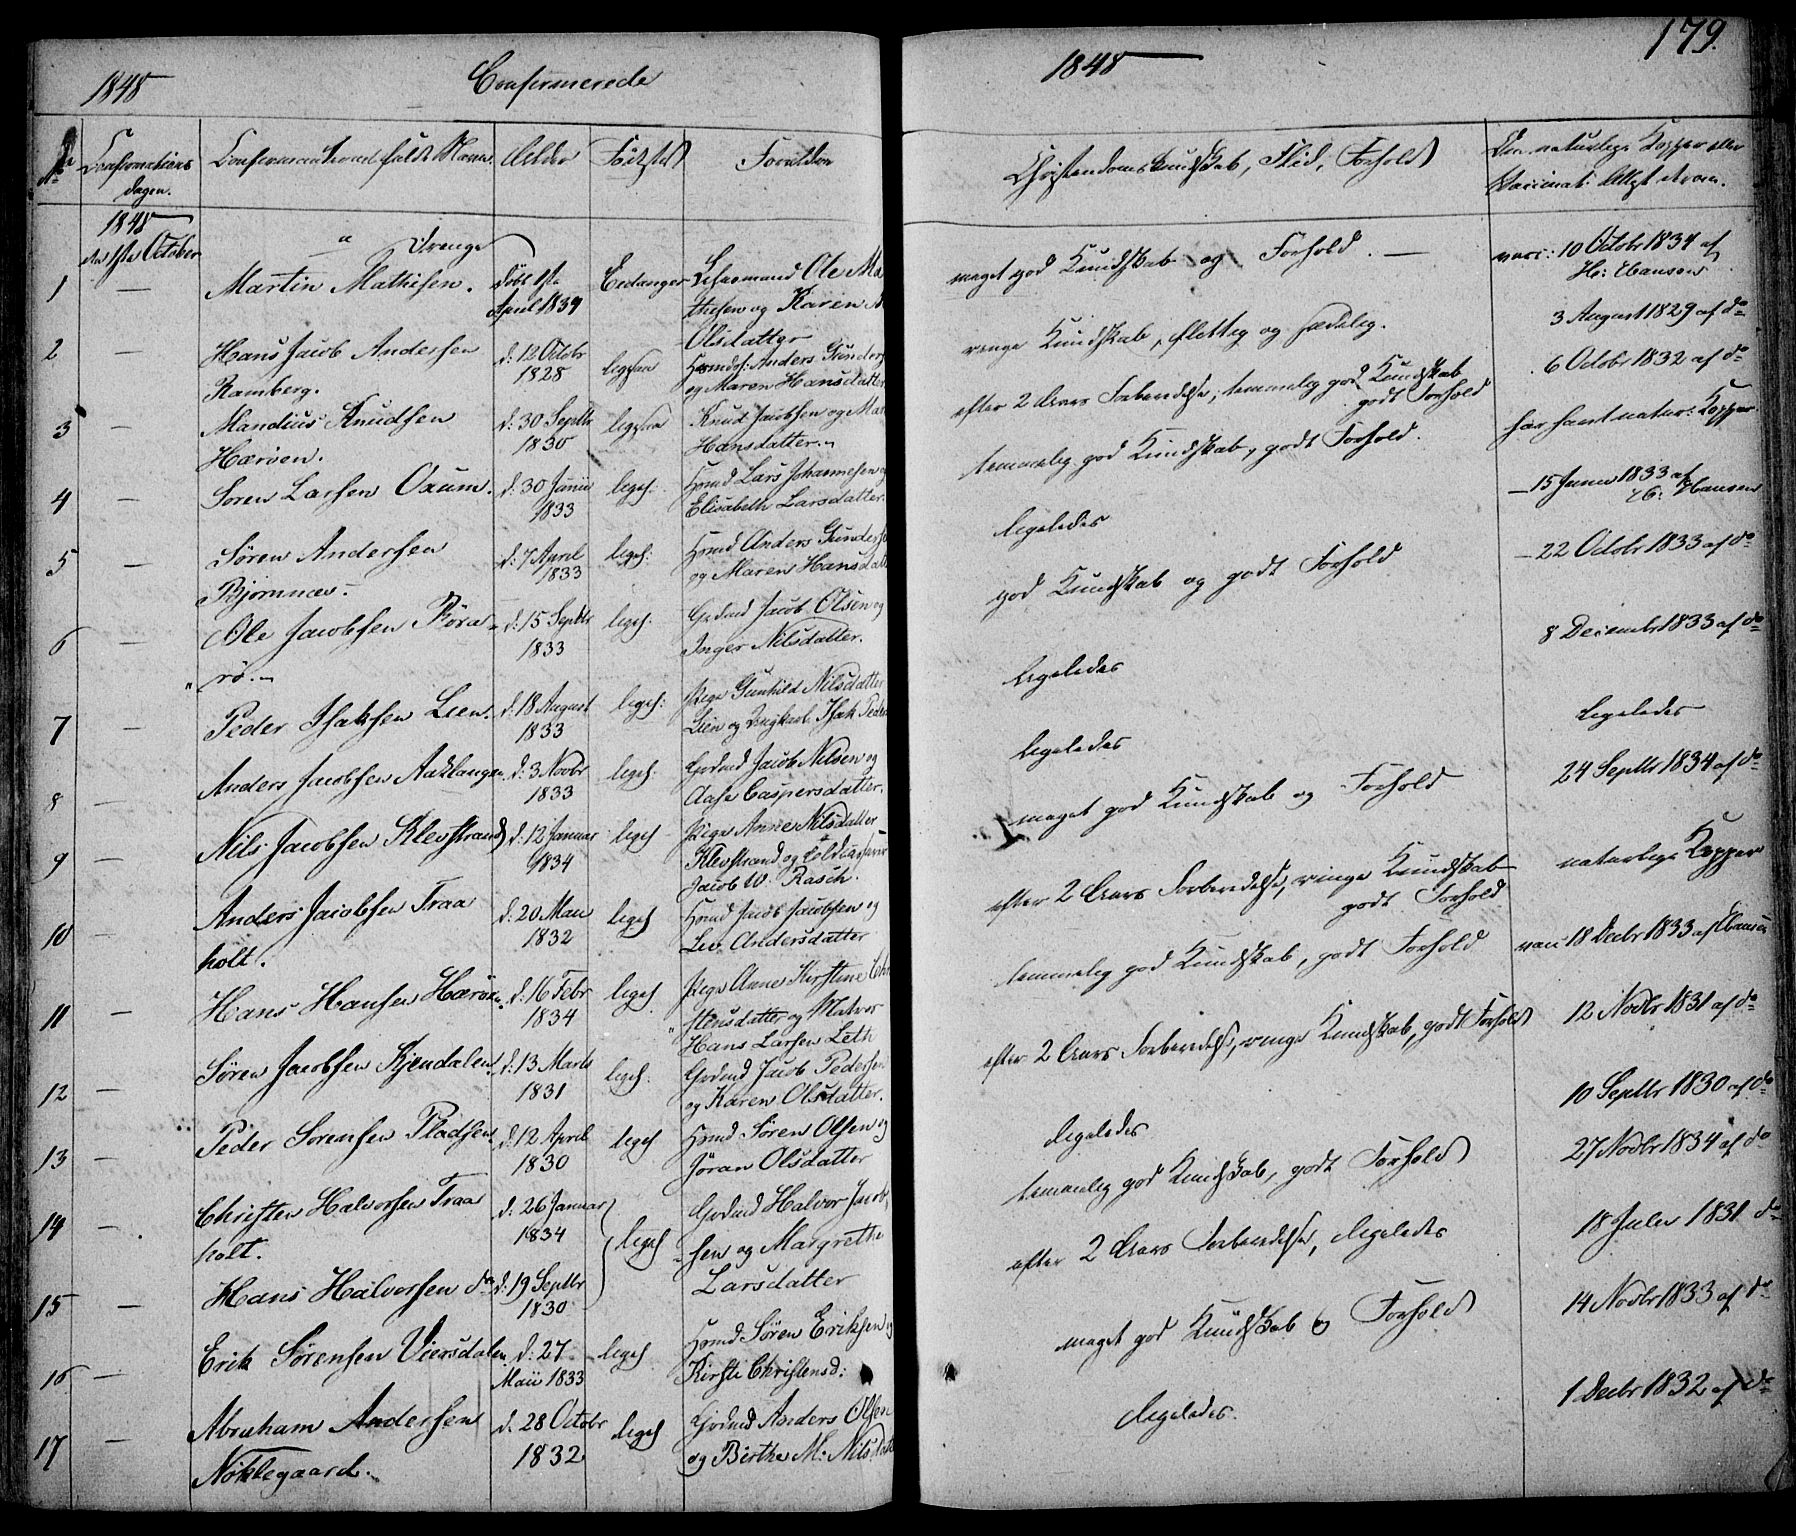 1848
Confirmerede
No
Confirmations
dagen.
Confirmanternes fulde Navn
Alder
Fødested
Forældre
1848
den 1ste October
" Drenge
1 — Martin Mathisen. Døbt 1ste Eidanger Ole Ma
April 1834 thisen og Karen
Olsdatter
2 — Hans Jacob Andersen d: 12 Octobr ligesaa Huusmd: Anders Gunders
Ramberg. 1828 og Maren Hansdatter
3 — Mandius Knudsen d: 30 Septbr ligesaa Knud Jacobsen og Mar
Hærøen. 1830 Hansdatter.
4 — Søren Larsen Oxum. d: 30 Junii liges: Huusmd Lars Johannesen og
1833 Elisabeth Larsdatter.
5 — Søren Andersen d: 7 April liges: Huusmd Anders Gunders
Bjørnnæs. 1833 og Maren Hansdatt
6 — Ole Jacobsen Røra- d: 15 Septbr liges: Grdmd Jacob Olsen og
"rø. 1833 Inger Nilsdatter.
7 — Peder Isaksen Lien. d: 18 August liges: Pige Gunhild Nilsdatter
1833 Lien og Ungkarl Isak Peder
8 — Anders Jacobsen Aaklungen d: 3 Novbr liges: Grdmd Jacob Nilsen og
1833 Aase Caspersdatter.
9 — Nils Jacobsen Klevstrand d: 12 Januar liges Pige Anne Nilsdatter
1834 Klevstrand og
Jacob W. Rasch.
10 — Anders Jacobsen Traa d: 20 Maii liges Huusmd Jacob Jacobsen og
holt. 1832 Liv Andersdatter
11 — Hans Hansen Hærøen d: 16 Febr liges Pige Anne Kirstine Chri
1834 "stensdatter og Matros
Hans Larsen Leth
12 — Søren Jacobsen Kjendalen d: 13 Marts liges: Grdmd Jacob Pedersen
1831 og Karen Olsdatter.
13 — Peder Sørensen Pladsen d: 12 April liges Huusmd Søren Olsen og
1830 Jøran Olsdatter
14 — Christen Halvorsen Traa d: 26 Januar liges Grdmd Halvor Jacob
holt. 1834 sen og Margrethe
15 — Hans Halvorsen do d: 19 Septbr Larsdatter
1830
16 — Erik Sørensen Viersdalen d: 27 liges Huusmd: Søren Eriksen og
Maii 1833 Kirste Christensd:
17 — Abraham Andersen d. 28 Octobr liges Grdmd Anders Olsen
Nøklegaard. 1832 og Birthe M: Nilsdatt
1848
179.
Christendomskundskab, Flid, Forhold
Den naturlige Kopper eller
Vaccinat: Attest derom.
meget god Kundskab og Forhold. — vacc: 10 Octobr 1834 af
H: Hansen
ringe Kundskab, flittig og sædelig. 3 August 1829 af do
efter 2 Aars Forberedelse, temmelig god Kundskab 6 Octobr 1832 af do
godt Forhold
temmelig god Kundskab, godt Forhold. har havt natur: Kopper
ligeledes — 15 Junii 1833 af
H: Hansen
god Kundskab og godt Forhold — 22 Octobr 1833 af do
ligeledes 8 Decembr 1833 af do
ligeledes ligeledes
meget god Kundskab og Forhold 24 Septbr 1834 af do
efter 2 Aars Forberedelse, ringe Kundskab naturlige Kopper
godt Forhold
temmelig god Kundskab, godt Forhold vacc 18 Decbr 1833 af Hansen
efter 2 Aars Forberedelse, ringe Kundskab, godt Forhold 12 Novbr 1831 af do
ligeledes 10 Septbr 1830 af do
temmelig god Kundskab, godt Forhold 27 Novbr 1834 af do
efter 2 Aars Forberedelse, ligeledes 18 Julii 1831 do
meget god Kundskab og Forhold 14 Novbr 1833 af do
ligeledes. 1 Decbr 1832 af do